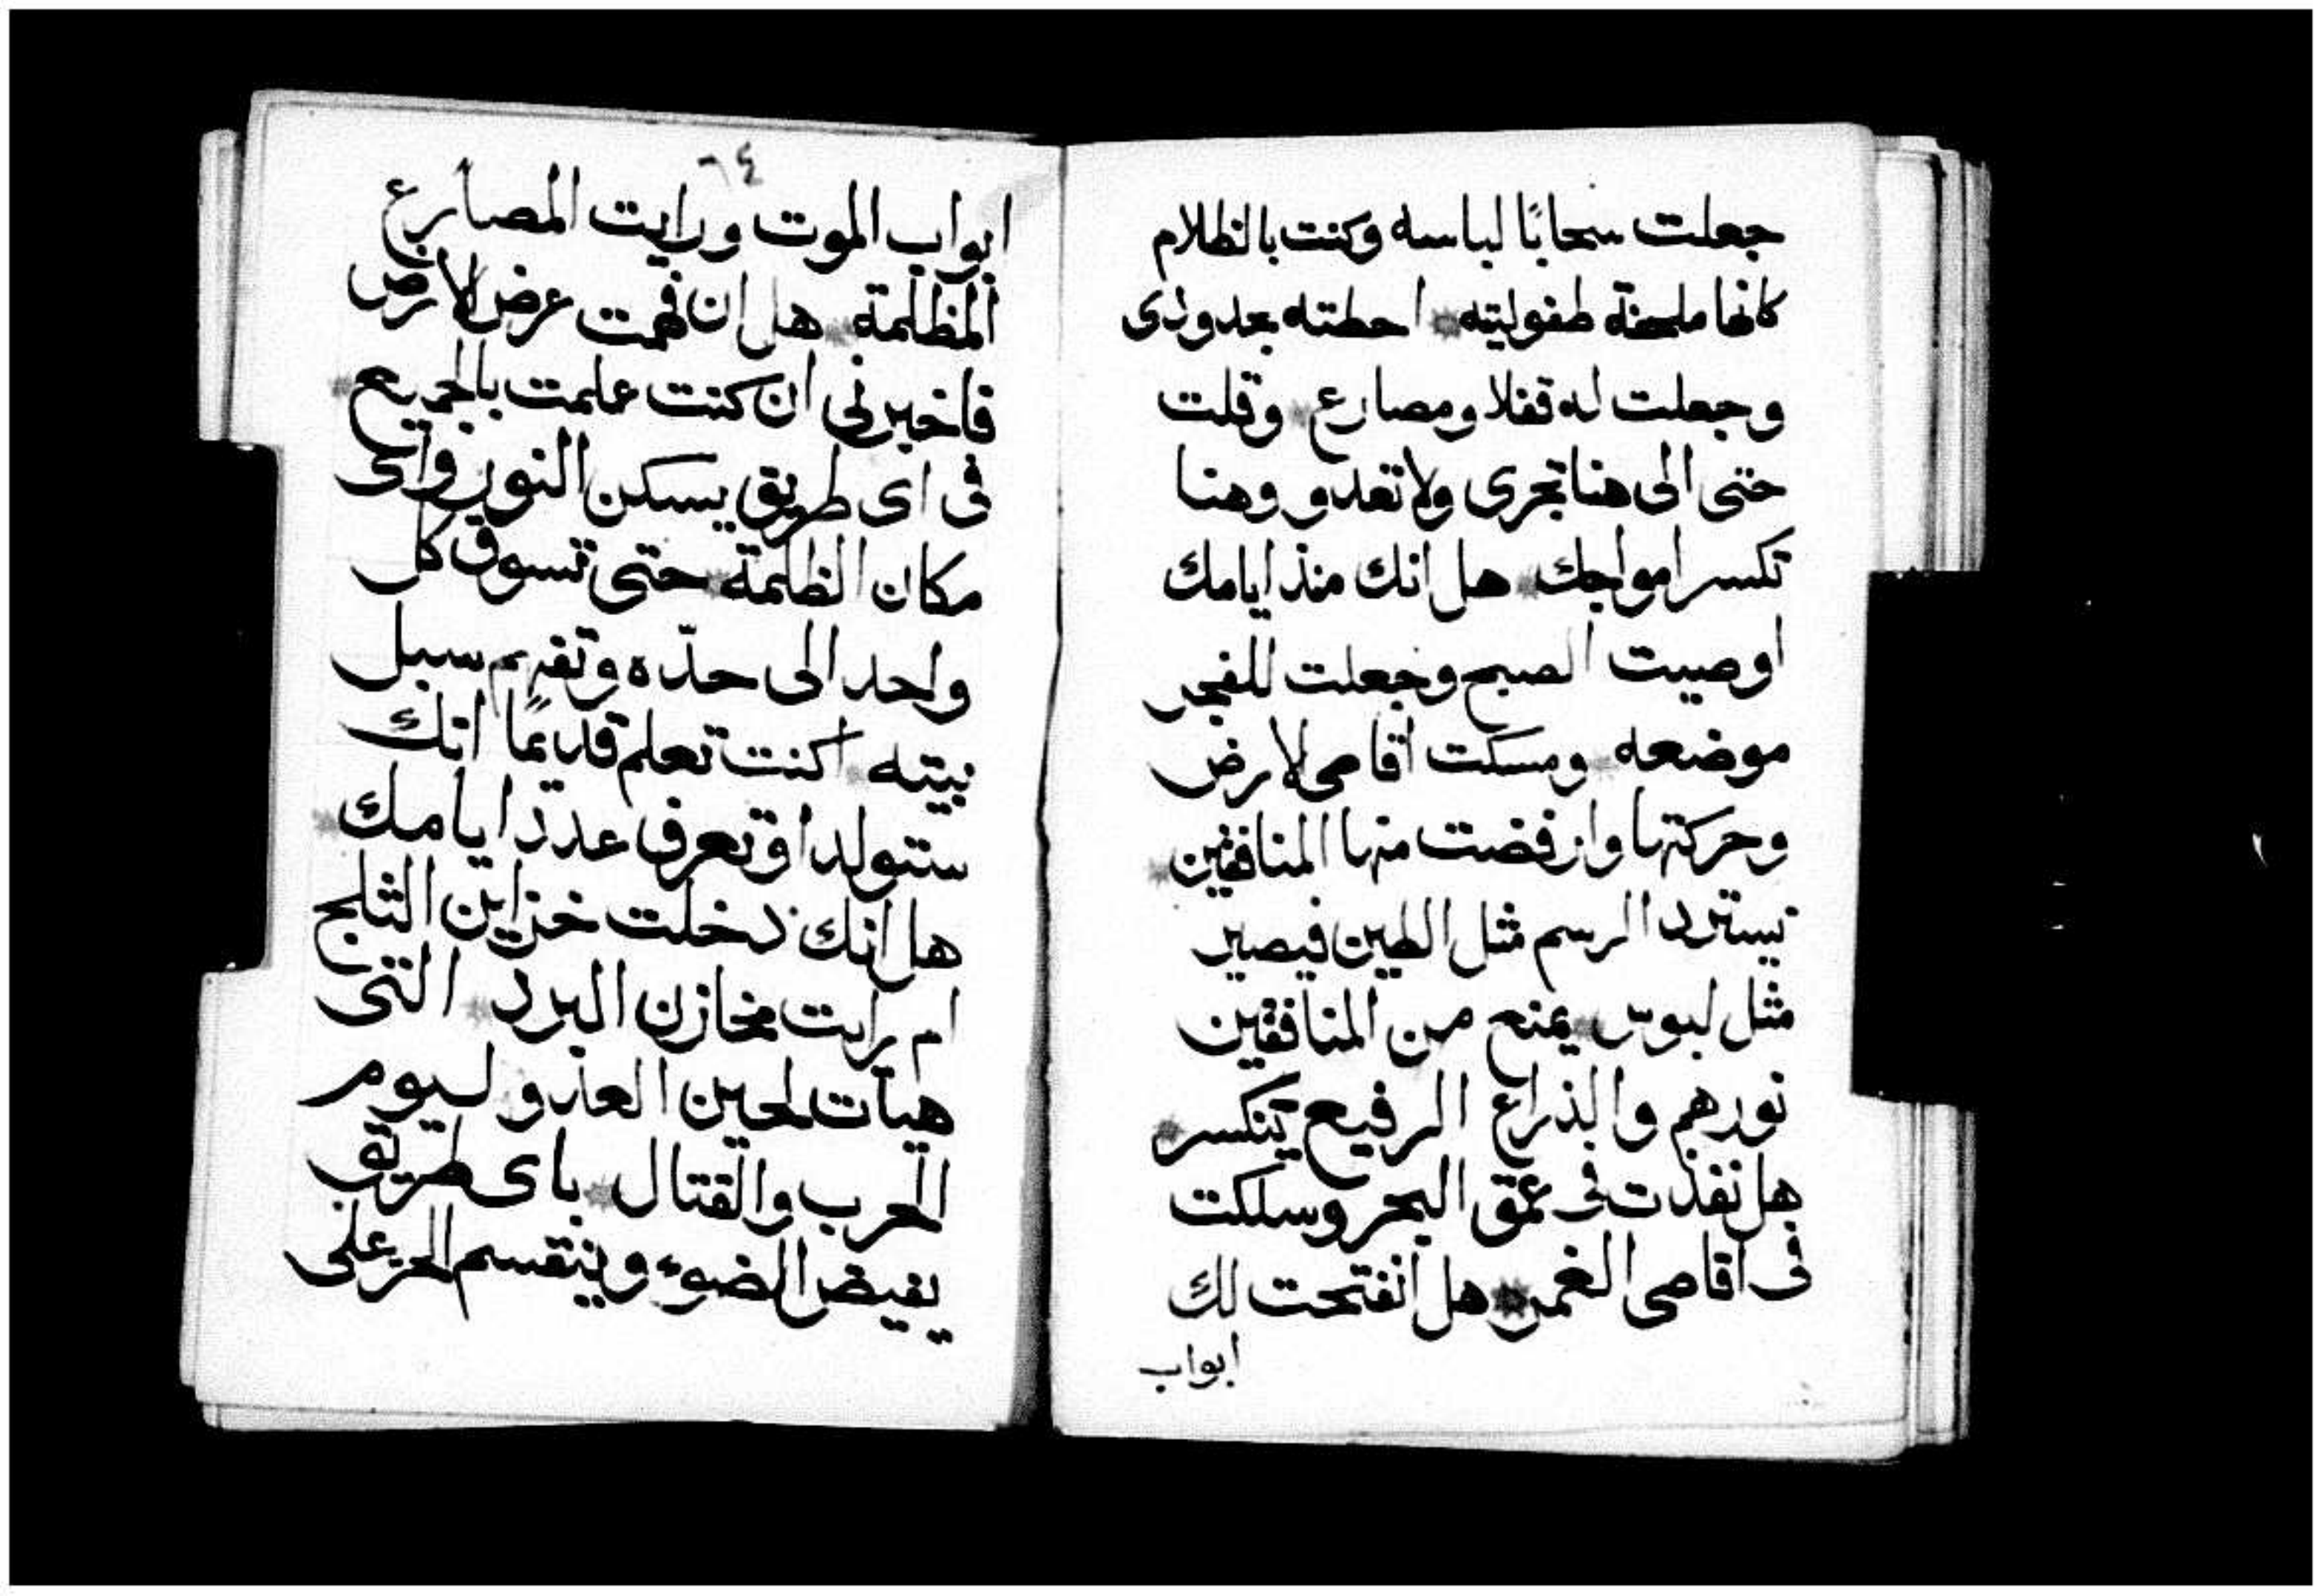 جعلت سحابًا لباسه وكنت بالظلام
كانها ملحفة طفوليته احطته بحدودى
وجعلت له قفلا ومصارع وقلت
حتى الى هنا تجرى ولا تعدو وهنا
تكسر امواجك هل انك منذ ايامك
اوصيت الصبح وجعلت للفجر
موضعه ومسكت اقاصى الارض
وحركتها وانفضت منها المنافقين
يسترد الرسم مثل الطين فيصير
مثل لبوس يمنع من المنافقين
نورهم والذراع الرفيع ينكسر
هل نفذت فى عمق البحر وسلكت
فى اقاصى الغمر هل انفتحت لك
ابواب
٦٤
ابواب الموت ورايت المصارع
المظلمة هل ان فهمت عرض الارض
فاخبرنى ان كنت علمت بالجميع
فى اى طريق يسكن النور واى
مكان الظلمة حتى تسوق كل
واحد الى حدّه وتفهم سبل
بيته اكنت تعلم قديمًا انك
ستتولد او تعرف عدد ايامك
هل انك دخلت خزاين الثلج
ام رايت مخازن البرد التى
هيات لحين العدو ليوم
الحرب والقتال باى طريق
يفيض الضوء وينقسم الحر على